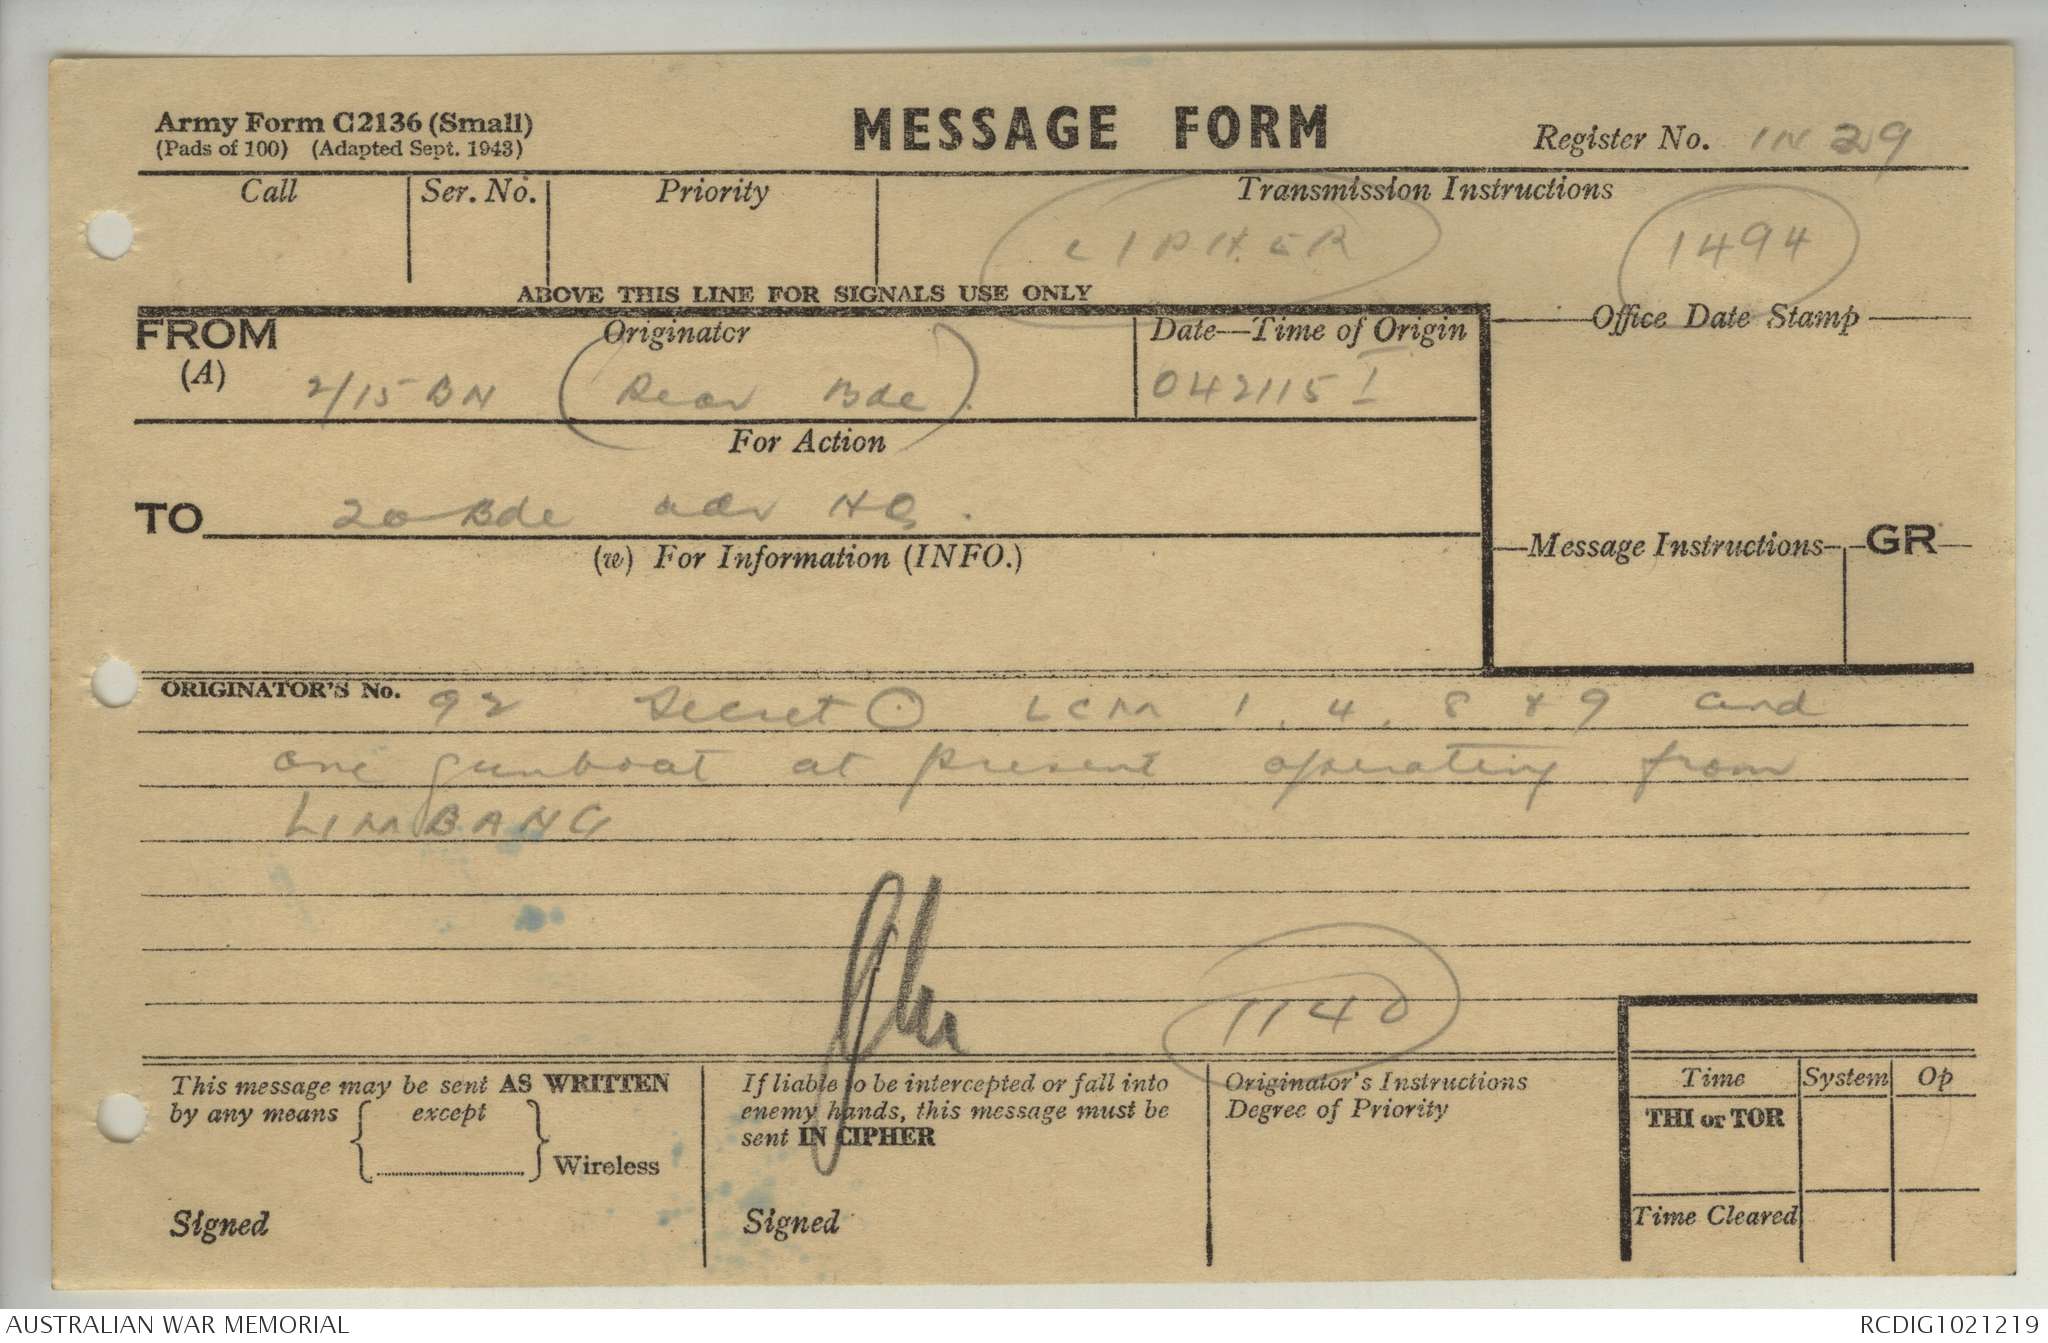 Army Form C2136 (Small)
(Pads of 100) (Adapted Sept. 1943)
MESSAGE FORM
Register No. IN 29
Call
Ser. No.
Priority
Transmission Instructions
CIPHER
1494
ABOVE THIS LINE FOR SIGNALS USE ONLY
FROM
(A)
Originator
2/15 BN (Rear Bde)
Date—Time of Origin
042115 I
Office Date Stamp
For Action
TO 20 Bde adv HQ.
(w) For Information (INFO.)
Message Instructions
GR
ORIGINATOR'S No. 92 Secret O LCM 1, 4, 8 & 9 and
one gunboat at present operating from
LIMBANG
1140
This message may be sent AS WRITTEN
by any means { except } Wireless
Signed
If liable to be intercepted or fall into
enemy hands, this message must be
sent IN CIPHER
Signed
Originator's Instructions
Degree of Priority
Time System Op
THI or TOR
Time Cleared
AUSTRALIAN WAR MEMORIAL
RCDIG1021219